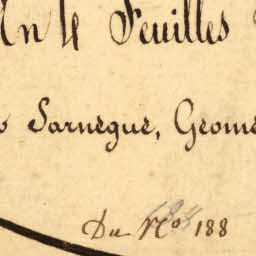 En 4 Feuilles
Sarnègue, Géomè
Du N.º 188